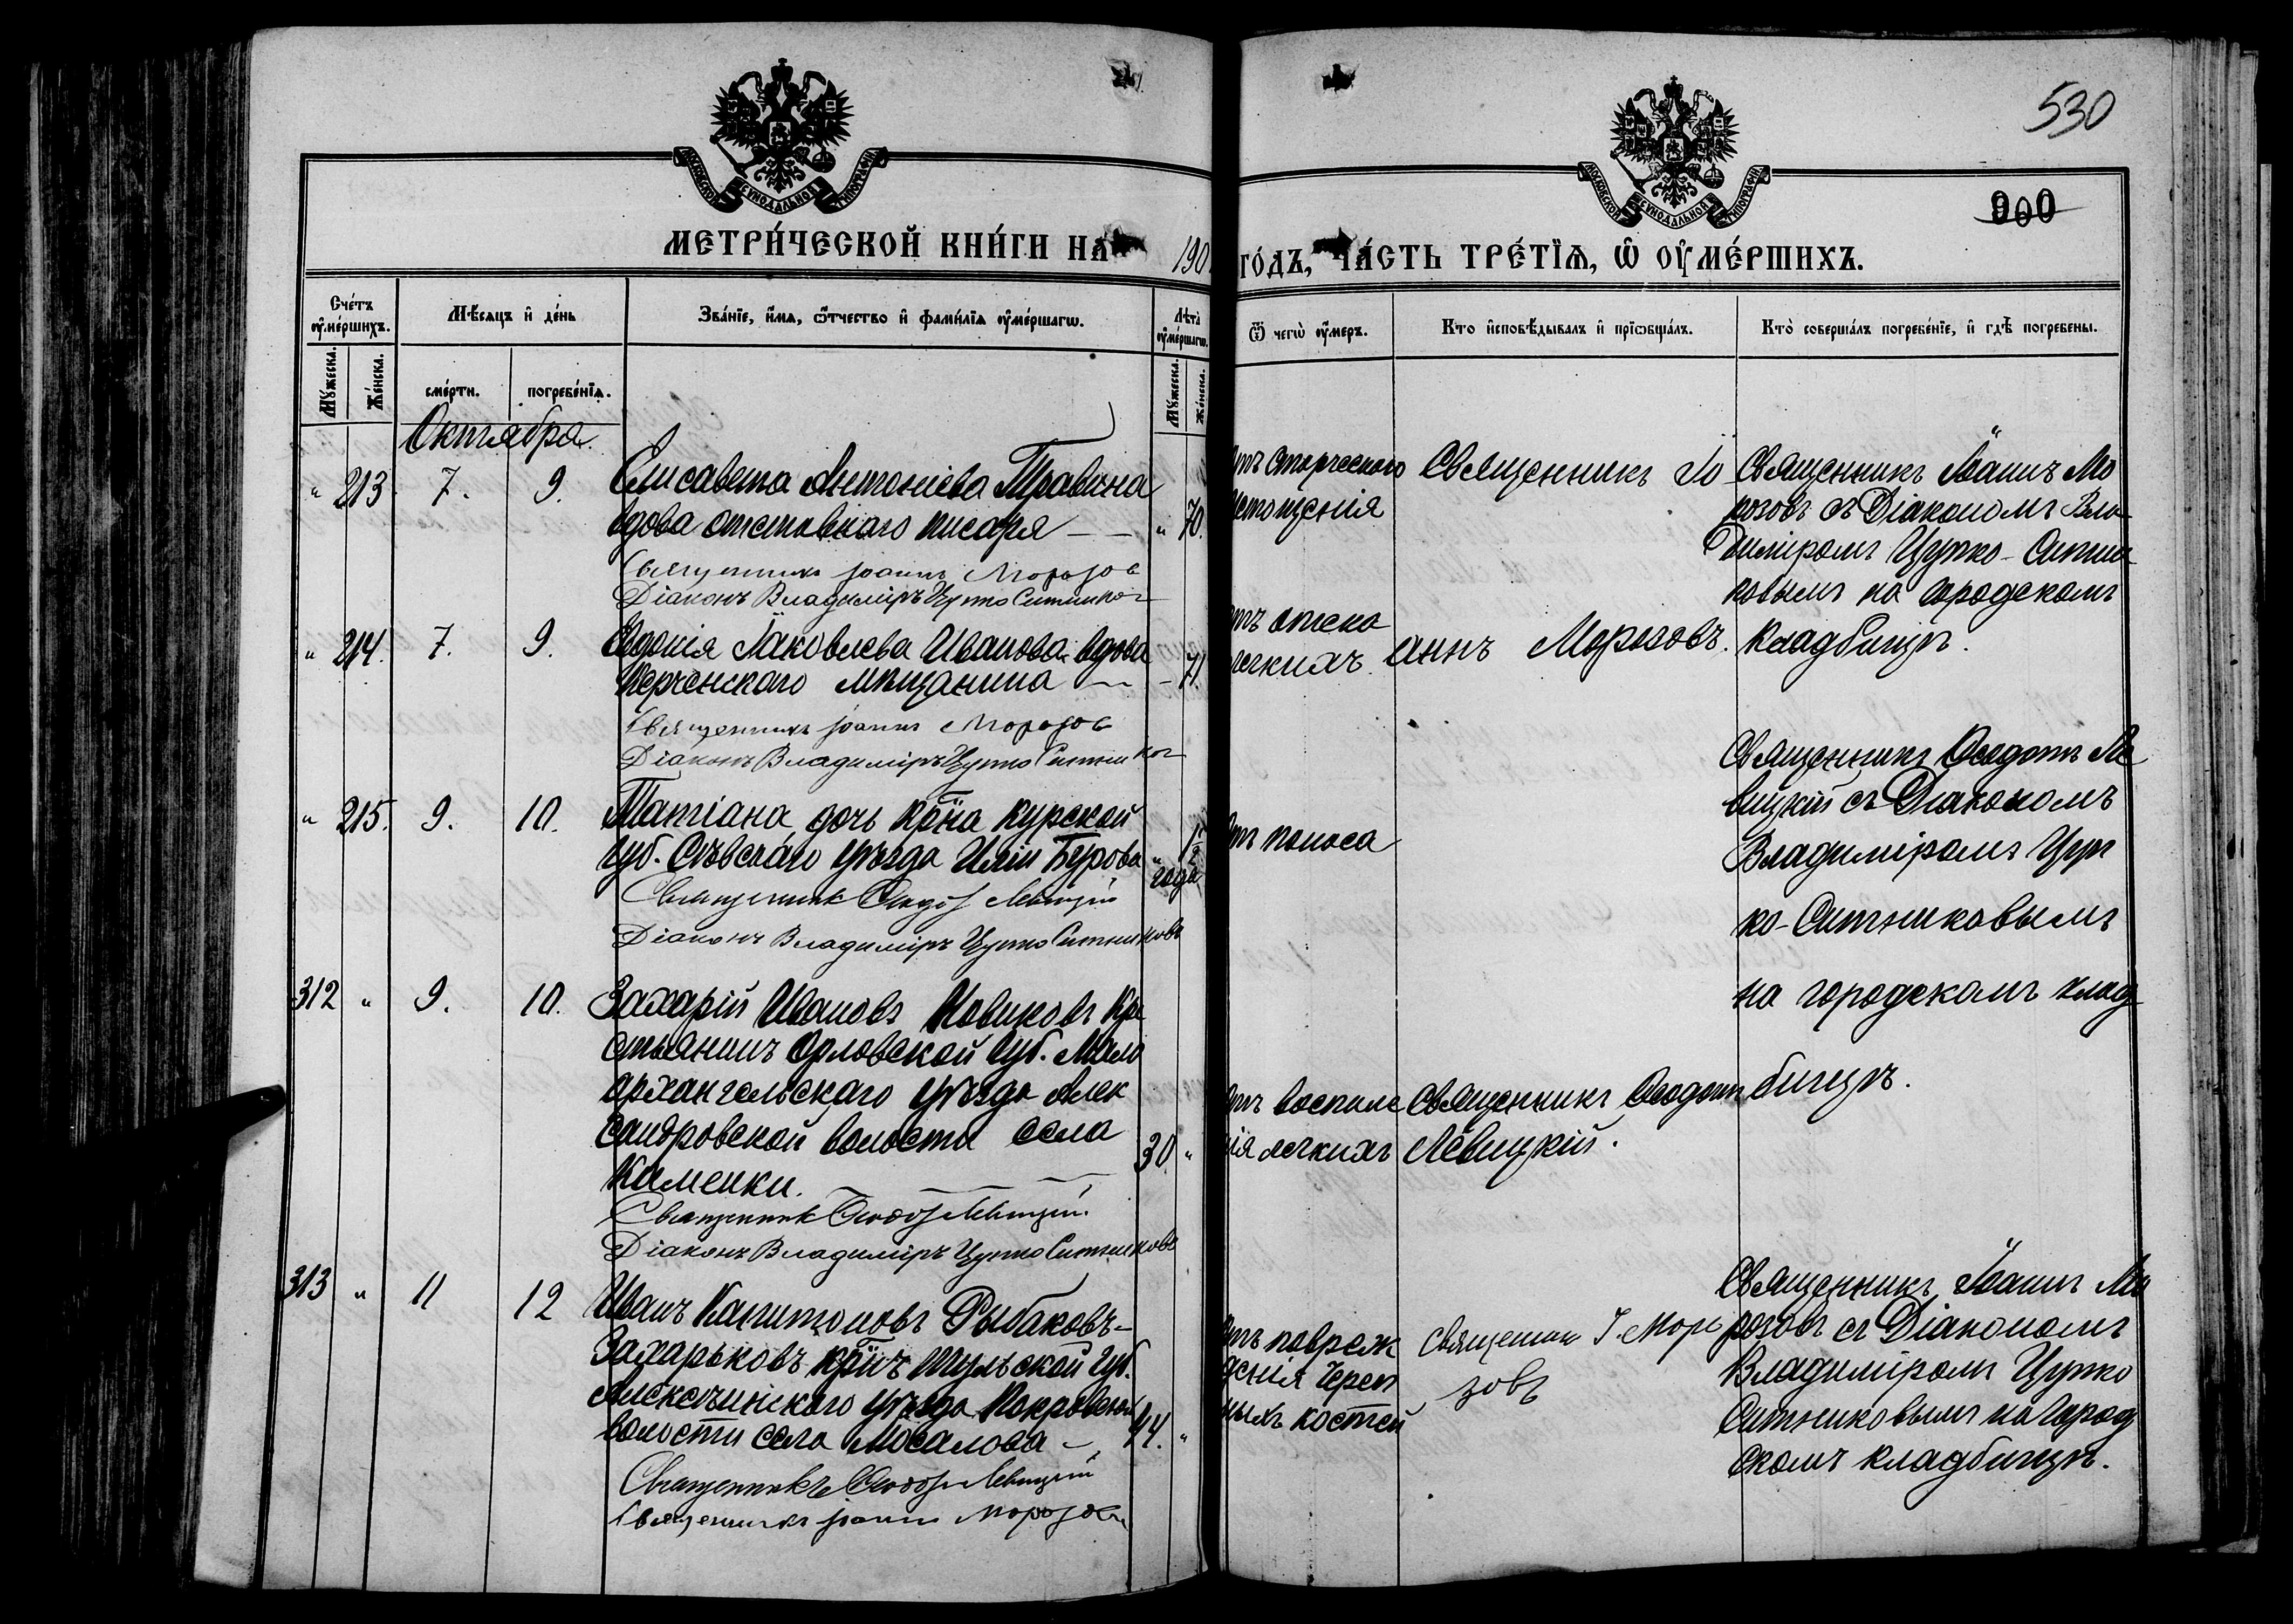 530
900
МОСКОВСКОЙ СѴНОДАЛЬНОЙ ТИПОГРАФІИ
МОСКОВСКОЙ СѴНОДАЛЬНОЙ ТИПОГРАФІИ
МЕТРИ́ЧЕСКОЙ КНИ́ГИ НА 190
ГО́ДЪ, ЧА́СТЬ ТРЕ́ТІѦ, Ѿ ОУ҆МЕ́РШИХЪ.
Сче́тъ оу҆ме́ршихъ.
Мꙋ́жеска.
Же́нска.
Мѣ́сяцъ и҆ де́нь
сме́рти.
погребе́нїѧ.
Зва́нїе, и҆́мѧ, ѻ҆́тчество и҆ фами́лїѧ оу҆ме́ршагѡ.
Лѣ́та оу҆ме́ршагѡ.
Мꙋ́жеска.
Же́нска.
Ѿ чегѡ̀ оу҆́меръ.
Кто̀ и҆сповѣ́дывалъ и҆ прїѡбща́лъ.
Кто̀ соверша́лъ погребе́нїе, и҆ гдѣ̀ погребены.
Октября.
" 213 7. 9. Елисавета Антоніева Травина
вдова отставнаго писаря — — " 70.
Священникъ Іоаннъ Морозов
Діаконъ Владиміръ Цупко Ситников
отъ старческаго
истощенія
Священникъ Іо
Священникъ Іоаннъ Мо
розовъ съ Діакономъ Вла
диміромъ Цупко-Ситни
ковымъ на городскомъ
кладбищѣ.
" 214. 7. 9. Евдокія Іаковлева Иванова вдова
Керченскаго мѣщанина — - 71.
Священникъ Іоаннъ Морозов
Діаконъ Владиміръ Цупко Ситников
отъ отека
легкихъ
аннъ Морозовъ.
" 215. 9. 10. Татіана, дочь кр̃на Курской
губ. Сѣвскаго уѣзда Иліи Бурова " 1/2
года
Священник Ѳеодот Левицкій
Діаконъ Владиміръ Цупко Ситниковъ
отъ поноса
Священникъ Ѳеодотъ Ле
вицкій съ Діакономъ
Владиміромъ Цуп
ко-Ситниковымъ
на городскомъ клад
бищѣ.
312 " 9. 10. Захарій Ивановъ Новиковъ кре
стьянинъ Орловской губ. Мало
архангельскаго уѣзда Алек
сандровской волости села
Каменки. — 30. "
Священник Ѳеодот Левицкій.
Діаконъ Владиміръ Цупко Ситниковъ
отъ воспале
нія легкихъ
Священникъ Ѳеодотъ
Левицкій.
313 " 11 12 Иванъ Капитоновъ Рыбаковъ-
Захарьковъ кр̃нъ Тульской губ.
Алексинскаго уѣзда Покровской
волости села Мосалова — 44. "
Священникъ Ѳеодот Левицкій
Священникъ Іоаннъ Морозовъ
отъ повреж
денія череп
ныхъ костей
Священник І. Моро
зовъ
Священникъ Іоаннъ Мо
розовъ съ Діакономъ
Владиміромъ Цупко
Ситниковымъ на город
скомъ кладбищѣ.